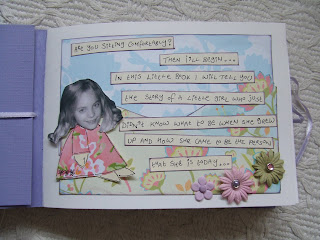 ARE YOU SITTING COMFORTABLY?
THEN I'LL BEGIN...
IN THIS LITTLE BOOK I WILL TELL YOU
THE STORY OF A LITTLE GIRL WHO JUST
DIDN'T KNOW WHAT TO BE WHEN SHE GREW
UP AND HOW SHE CAME TO BE THE PERSON
THAT SHE IS TODAY...